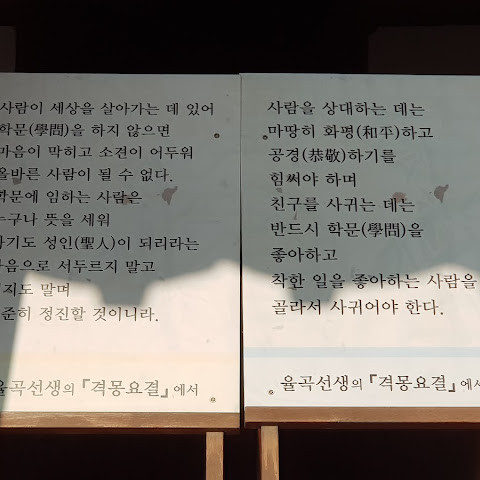 사람이 세상을 살아가는 데 있어
학문(學問)을 하지 않으면
마음이 막히고 소견이 어두워
올바른 사람이 될 수 없다.
학문에 임하는 사람은
누구나 뜻을 세워
자기도 성인(聖人)이 되리라는
마음으로 서두르지 말고
말며
정진할 것이니라.
율곡선생의 『격몽요결』에서
사람을 상대하는 데는
마땅히 화평(和平)하고
공경(恭敬)하기를
힘써야 하며
친구를 사귀는 데는
반드시 학문(學問)을
좋아하고
착한 일을 좋아하는 사람을
골라서 사귀어야 한다.
율곡선생의 『격몽요결』에서